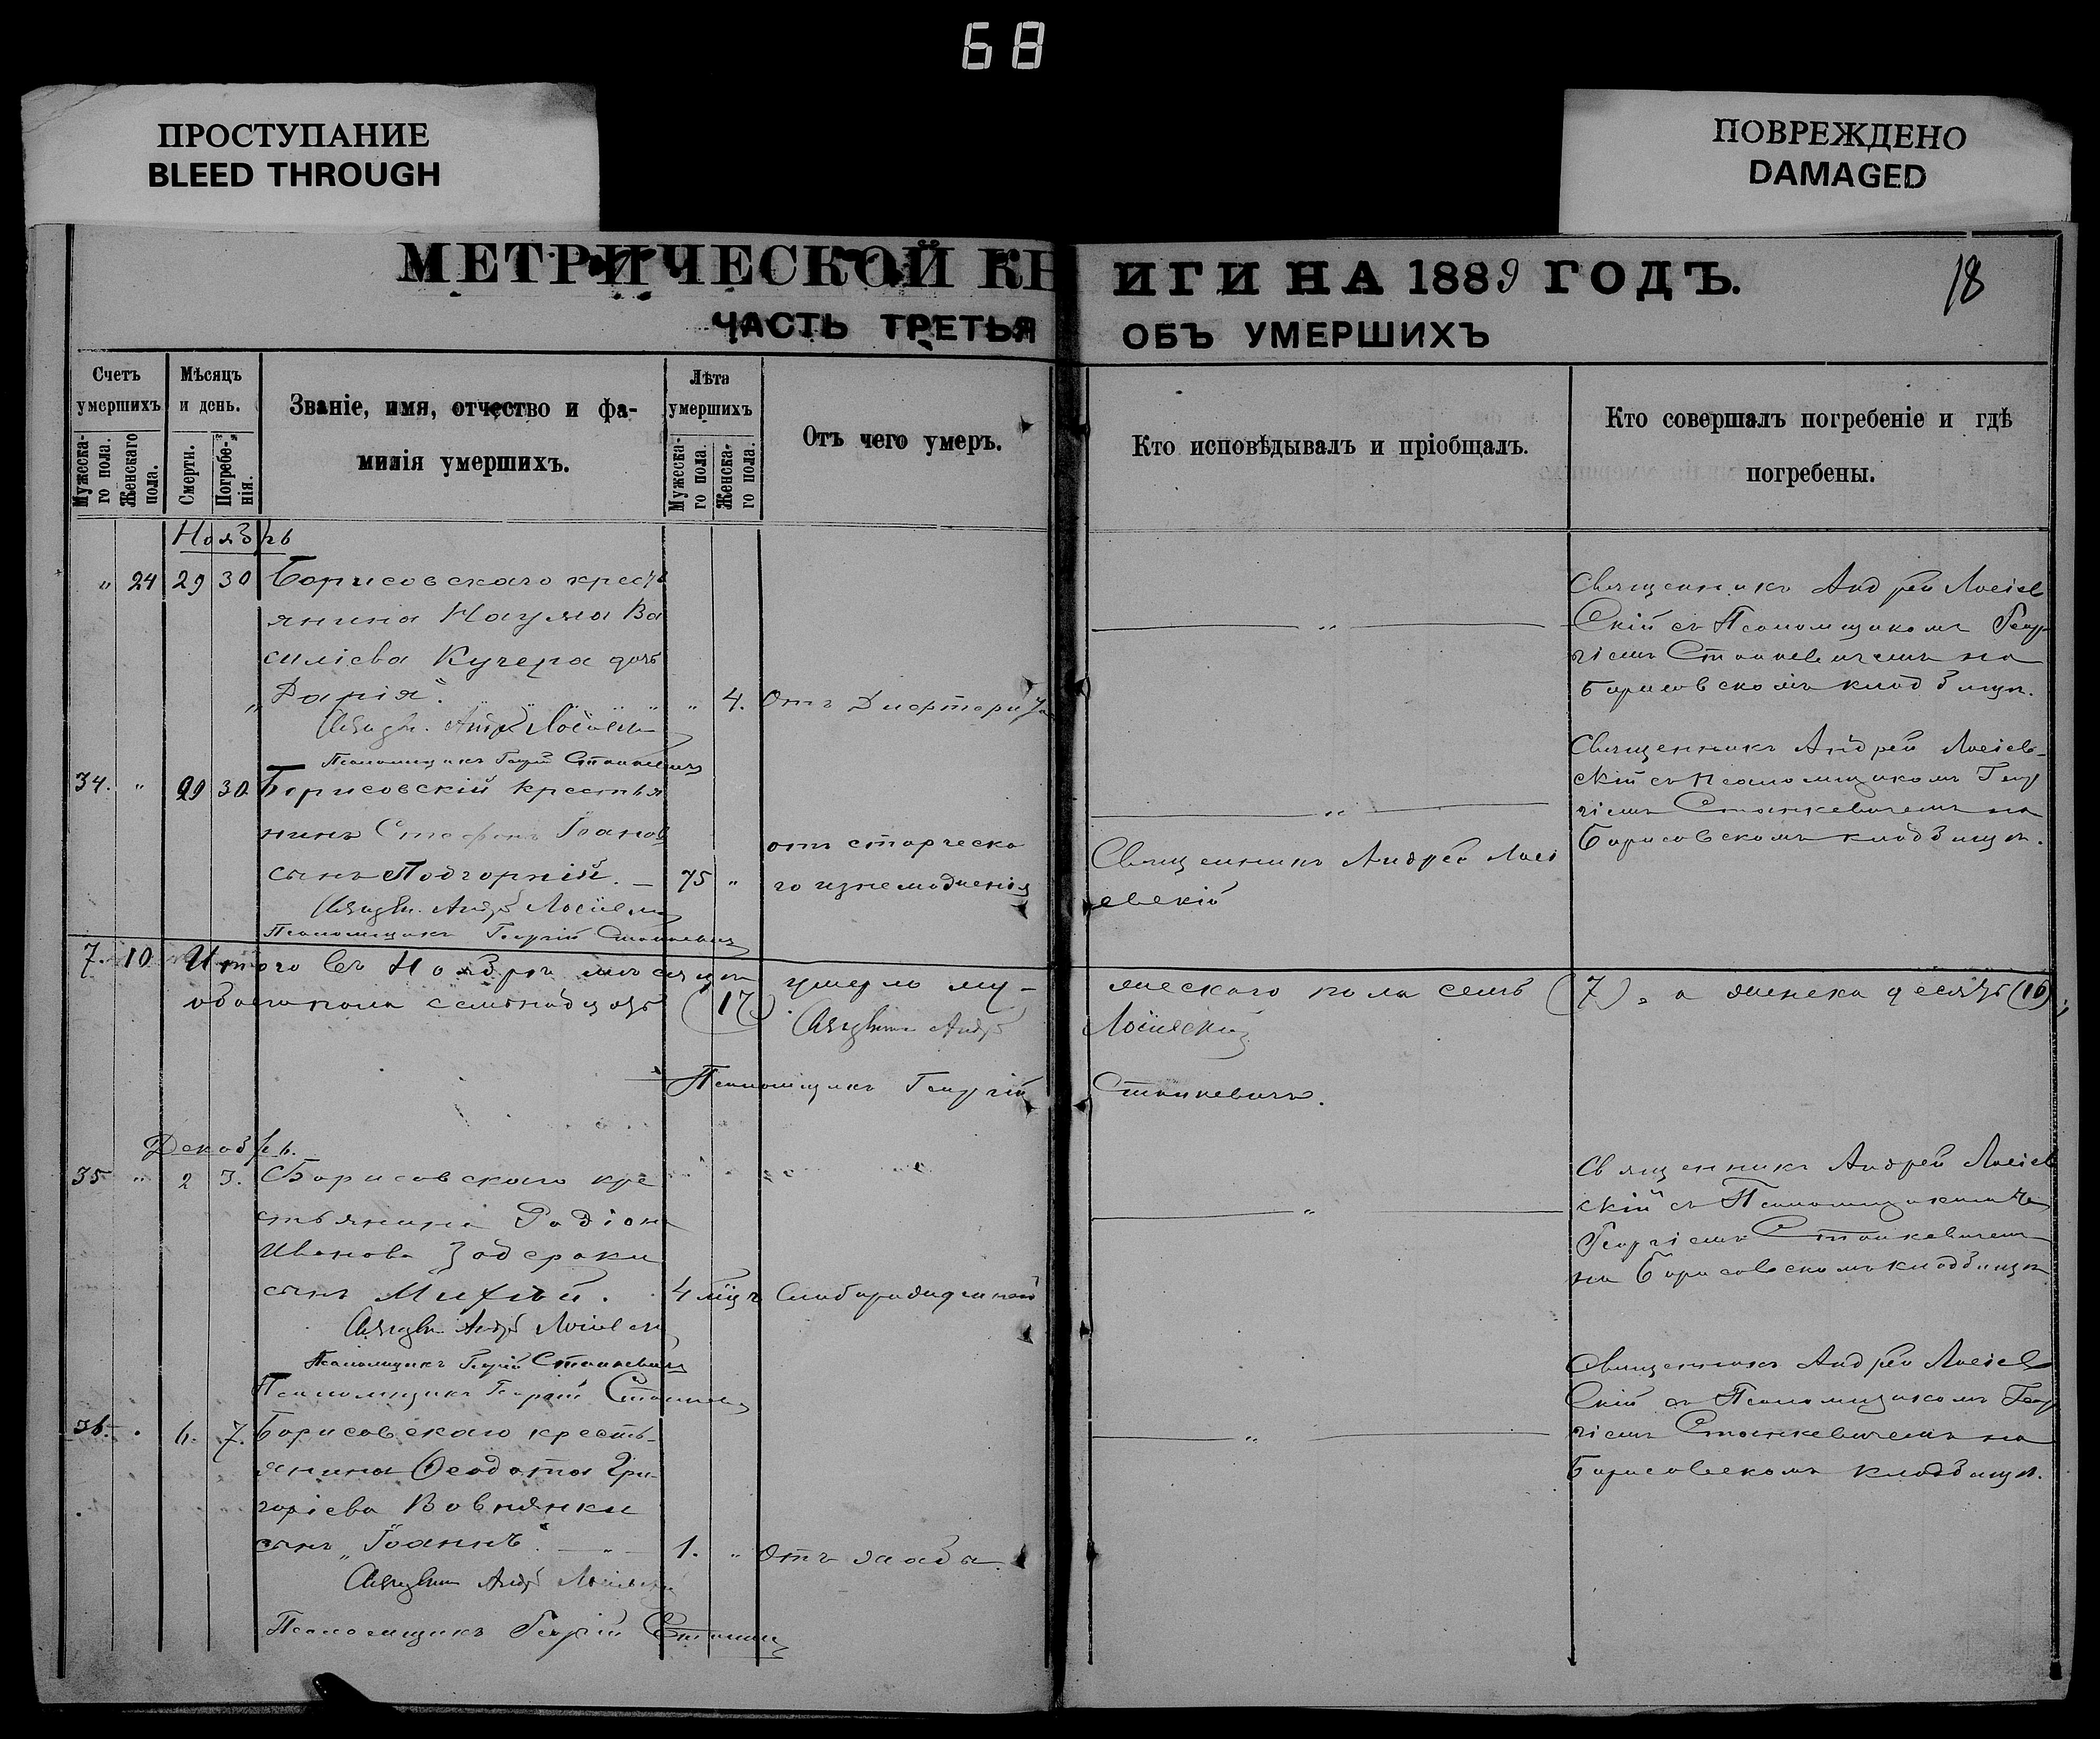 68
ПРОСТУПАНИЕ
BLEED THROUGH
ПОВРЕЖДЕНО
DAMAGED
МЕТРИЧЕСКОЙ КНИГИ НА 1889 ГОДЪ.
18
ЧАСТЬ ТРЕТЬЯ ОБЪ УМЕРШИХЪ
Счетъ умершихъ
Мужеска-го пола.
Женскаго пола.
Мѣсяцъ и день.
Смерти.
Погребе-нія.
Званіе, имя, отчество и фа-
милія умершихъ.
Лѣта умершихъ
Мужеска-го пола.
Женска-го пола.
Отъ чего умеръ.
Кто исповѣдывалъ и пріобщалъ.
Кто совершалъ погребеніе и гдѣ
погребены.
Ноябрь
" 24 29 30 Борисовскаго кресть
янина Наума Ва
силіева Кучера дочь
"Дарія". " 4. Отъ Дифтерита
Священ. Андрей Лосіевскій
Псаломщикъ Георгій Станкевичъ
"
Священникъ Андрей Лосіев
скій съ Псаломщикомъ Геор
гіемъ Станкевичемъ на
Борисовскомъ кладбищѣ.
34. " 29 30. Борисовскій крестья
нинъ Стефанъ Іоанов
сынъ Подгорній. — 75 "
отъ старческа
го изнеможенія
Священ. Андрей Лосіевскій
Псаломщикъ Георгій Станкевичъ
"
Священникъ Андрей Лосі
евскій
Священникъ Андрей Лосіев-
скій съ Псаломщикомъ Геор
гіемъ Станкевичемъ на
Борисовскомъ кладбищѣ.
7. 10 Итого въ Ноябрѣ мѣсяцѣ умерло му-жескаго пола семь (7), а женска десять (10),
обоего пола семьнадцать (17).
Священникъ Андрей Лосіевскій
Псаломщикъ Георгій Станкевичъ.
Декабрь.
35 " 2 3. Борисовскаго кре
стьянина Радіона
Иванова Задераки
сынъ Михаи. 4 мѣц. Слаборожденной
Священ. Андрей Лосіевскій
Псаломщикъ Георгій Станкевичъ
Псаломщикъ Георгій Станкев
"
Священникъ Андрей Лосіев
скій съ Псаломщикомъ
Георгіемъ Станкевичемъ
на Борисовскомъ кладбищѣ
36. " 6. 7. Борисовскаго кресть-
янина Ѳеодота Гри-
горіева Вовнянки
сынъ "Іоаннъ". — " — 1. " Отъ
Священникъ Андрей Лосіевскій
Псаломщикъ Георгій Станкев
"
Священникъ Андрей Лосіев
скій съ Псаломщикомъ Геор
гіемъ Станкевичемъ на
Борисовскомъ кладбищѣ.